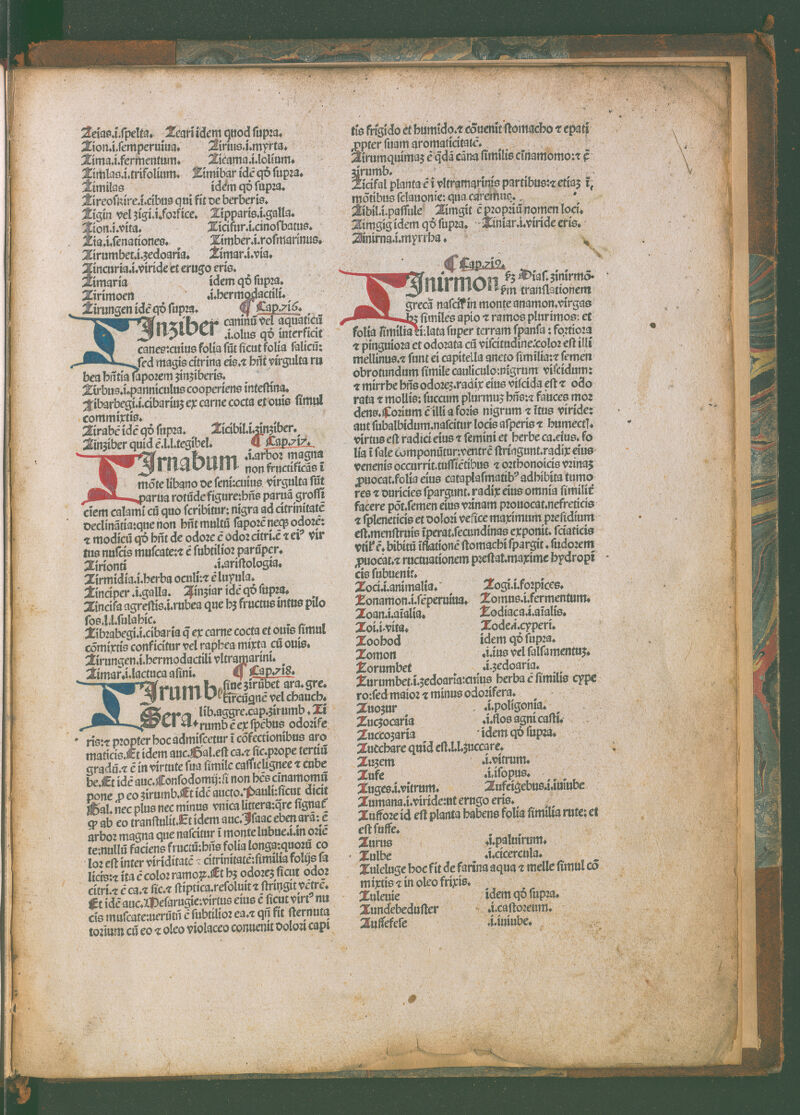 Zeias.i.spelta. Zeari idem quod supra.
Zion.i.semperuiua. Zirius.i.myrta.
Zima.i.fermentum. Zicama.i.lolium.
Zimlas.i.trifolium. Zimibar idē qḋ supra.
Zimilas idem qḋ supra.
Zireoskire.i.cibus qui fit de berberis.
Zigin vel zigi.i.forfice. Zipparis.i.galla.
Zion.i.vita. Zicifur.i.cinosbatus.
Zia.i.senationes. Zimber.i.rosmarinus.
Zirumbet.i.zedoaria. Zimar.i.via.
Zincuria.i.viride et erugo eris.
Zimaria idem qḋ supra.
Zirimoen .i.hermodactili.
Zirungen idē qḋ supra. ¶ Cap.716.
Inziber caninū vel aquaticū
.i.olus qḋ interficit
canes:cuius folia sūt sicut folia salicū:
sed magis citrina eis.⁊ hn̄t virgulta ru
bea hn̄tia saporem zinziberis.
Zirbus.i.panniculus cooperiens intestina.
Zibarbegi.i.cibariuꝫ ex carne cocta et ouis simul
commixtis.
Zirabē idē qḋ supra. Zicibil.i.zinziber.
Zinziber quid ē.l.l.tegibel. ¶ Cap.717.
Irnabum .i.arbor magna
non fructificās ī
mōte libano de seni:cuius virgulta sūt
parua rotūde figure:hn̄s paruā grossi
ciem calami cū quo scribitur: nigra ad citrinitatē
declinātia:que non hn̄t multū saporē necꝫ odorē:
⁊ modicū qḋ hn̄t de odore ē odor citri.ē ⁊ ei⁹ vir
tus nuscis muscate:⁊ ē subtilior parūper.
Zirionti .i.aristologia.
Zirmidia.i.herba oculi:⁊ ē luyula.
Zinciper .i.galla. Zinziar idē qḋ supra.
Zincisa agrestis.i.rubea que hꝫ fructus intus pilo
sos.l.l.sulahic.
Zibrabegi.i.cibaria q̄ ex carne cocta et ouis simul
cōmixtis conficitur vel raphea mixta cū ouis.
Zirungen.i.hermodactili vltramarini.
Zimar.i.lactuca asini. ¶ Cap.718.
Irumbe siue zirūbet ara. gre.
kircūgne vel chauch.
Sera. lib.aggre.cap.zirumb. Zi
rumb ē ex sp̄ebus odorife
ris:⁊ propter hoc admiscetur ī cōfectionibus aro
maticis.Et idem auc.Gal.est ca.⁊ sic.prope tertiū
gradū.⁊ ē in virtute sua simile cassielignee ⁊ cube
be.Et idē auc.Consodomij:si non hēs cinamomū
pone ꝓ eo zirumb.Et idē aucto.Pauli:sicut dicit
Gal. nec plus nec minus vnica littera:q̄re signat̄
ꝙ ab eo transtulit.Et idem auc.Isaac eben arā: ē
arbor magna que nascitur ī monte lubue.i.in oriē
te:nullū faciens fructū:hn̄s folia longa:quorū co
lor est inter viriditatē ⁊ citrinitatē:similia folijs sa
licis:⁊ ita ē color ramoꝝ.Et hꝫ odorēꝫ sicut odor
citri.⁊ ē ca.⁊ sic.⁊ stiptica.resoluit ⁊ stringit vētrē.
Et idē auc.Mesarugie:virtus eius ē sicut virt⁹ nu
cis muscate:uerūtn̄ ē subtilior ea.⁊ qn̄ fit sternuta
torium cū eo ⁊ oleo violaceo conuenit dolori capi
tis frigido et humido.⁊ cōuenit stomacho ⁊ epati
ꝓpter suam aromaticitatē.
Zirumquimaꝫ ē q̄dā cāna similis cīnamomo:⁊ ē
zirumb.
Zicifal planta ē ī vltramarinis partibus:⁊ etiaꝫ ī
mōtibus sclauonie: qua caremus.
Zibil.i.passule Zimgit ē propriū nomen loci.
Zimgig idem qḋ supra. Ziniar.i.viride eris.
Zinirna.i.myrrha.
¶ Cap.719.
Inirmon ẜꝫ Dias. zinirmō.
ẜm translationem
grecā nascit̄ in monte anamon.virgas
hꝫ similes apio ⁊ ramos plurimos: et
folia similia ei:lata super terram spansa : fortiora
⁊ pinguiora et odorata cū viscitudine:color est illi
mellinus.⁊ sunt ei capitella aneto similia:⁊ semen
obrotundum simile cauliculo:nigrum viscidum:
⁊ mirrhe hn̄s odoreꝫ.radix eius viscida est ⁊ odo
rata ⁊ mollis: succum plurimuꝫ hn̄s:⁊ fauces mor
dens.Corium ē illi a foris nigrum ⁊ ītus viride:
aut subalbidum.nascitur locis asperis ⁊ humect̄.
virtus est radici eius ⁊ semini et herbe ca.eius. fo
lia ī sale componūtur:ventrē stringunt.radix eius
venenis occurrit.tussiētibus ⁊ orthonoicis vrinaꝫ
ꝓuocat.folia eius cataplasmatib⁹ adhibita tumo
res ⁊ duricies spargunt. radix eius omnia similit̄
facere pōt.semen eius vrinam prouocat.nefreticis
⁊ spleneticis et dolori vesice maximum presidium
est.menstruis īperat.secundinas exponit. sciaticis
vtil' ē. bibitū īflationē stomachi spargit . sudorem
ꝓuocat.⁊ ructuationem prestat.maxime hydropi
cis subuenit.
Zoci.i.animalia. Zogi.i.forpices.
Zonamon.i.sēperuiua. Zomus.i.fermentum.
Zoan.i.aīalia. Zodiaca.i.aīalis.
Zoi.i.vita. Zode.i.cyperi.
Zoobod idem qḋ supra.
Zomon .i.ius vel salsamentuꝫ.
Zorumbet .i.zedoaria.
Zurumbet.i.zedoaria:cuius herba ē similis cype
ro:sed maior ⁊ minus odorifera.
Zuozur .i.poligonia.
Zuczocaria .i.flos agni casti.
Zuccozaria idem qḋ supra.
Zucchare quid est.l.l.zuccare.
Zuzem .i.vitrum.
Zufe .i.isopus.
Zuges.i.vitrum. Zufeigebus.i.iuiube
Zumana.i.viride:ut erugo eris.
Zuffore id est planta habens folia similia rute: et
est suffe.
Zurus .i.paluirum.
Zulbe .i.cicercula.
Zuleluge hoc fit de farina aqua ⁊ melle simul cō
mixtis ⁊ in oleo frixis.
Zuleuie idem qḋ supra.
Zundebeduster .i.castoreum.
Zuffefese .i.iuiube.